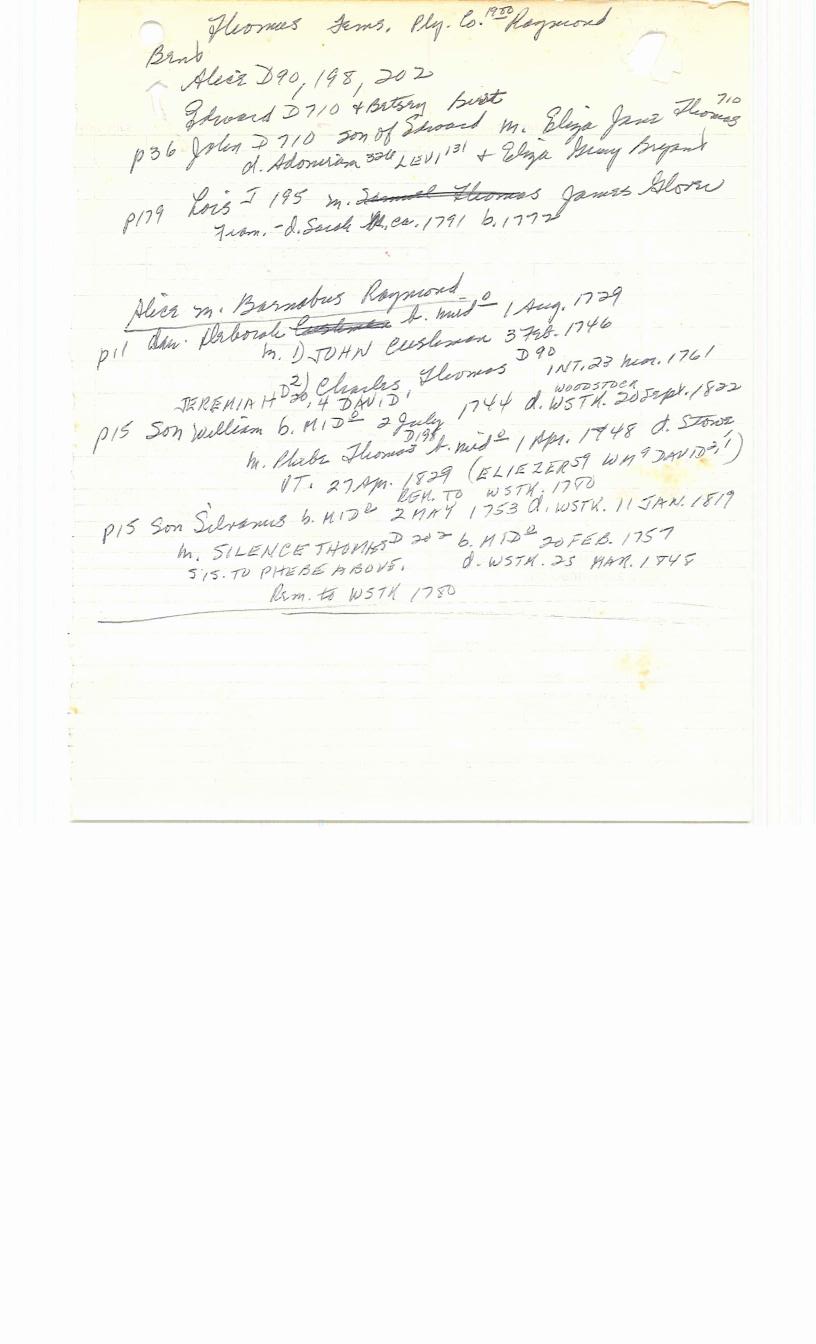 Thomas Fems. Ply. Co. 1980 Raymond
Bent
Alice D90, 198, 202
Edward D710 + Betsey Burt
p36 John D 710 son of Edward m. Eliza Jane Thomas 710
d. Adoniram 326 LEVI 131 + Eliza Gray Bryant
p179 Lois J 195 m. Samuel Thomas James Glover
Fram. - d. Sarah M. ca. 1791 b. 1772
Alice m. Barnabus Raymond
p11 dau. Deborah Cushman b. mid o 1 Aug. 1729
m. 1) JOHN Cushman 3 Feb. 1746
2) Charles, Thomas D90 INT. 23 Mar. 1761
JEREMIAH D 20, 4 DAVID 1
WOODSTOCK
p15 Son William b. MID o 2 July 1744 d. WSTK. 20 Sept. 1822
m. Phebe Thomas D198 b. mid o 1 Apr. 1748 d. Stowe
VT. 27 Apr. 1829 (ELIEZER 59 WM 9 DAVID 2, 1)
REM. TO WSTK. 1780
p15 Son Silvanus b. MID o 2 MAY 1753 d. WSTK. 11 JAN. 1819
m. SILENCE THOMAS D 202 b. MID o 20 FEB. 1757
SIS. TO PHEBE ABOVE. d. WSTK. 25 MAR. 1848
Rem. to WSTK 1780